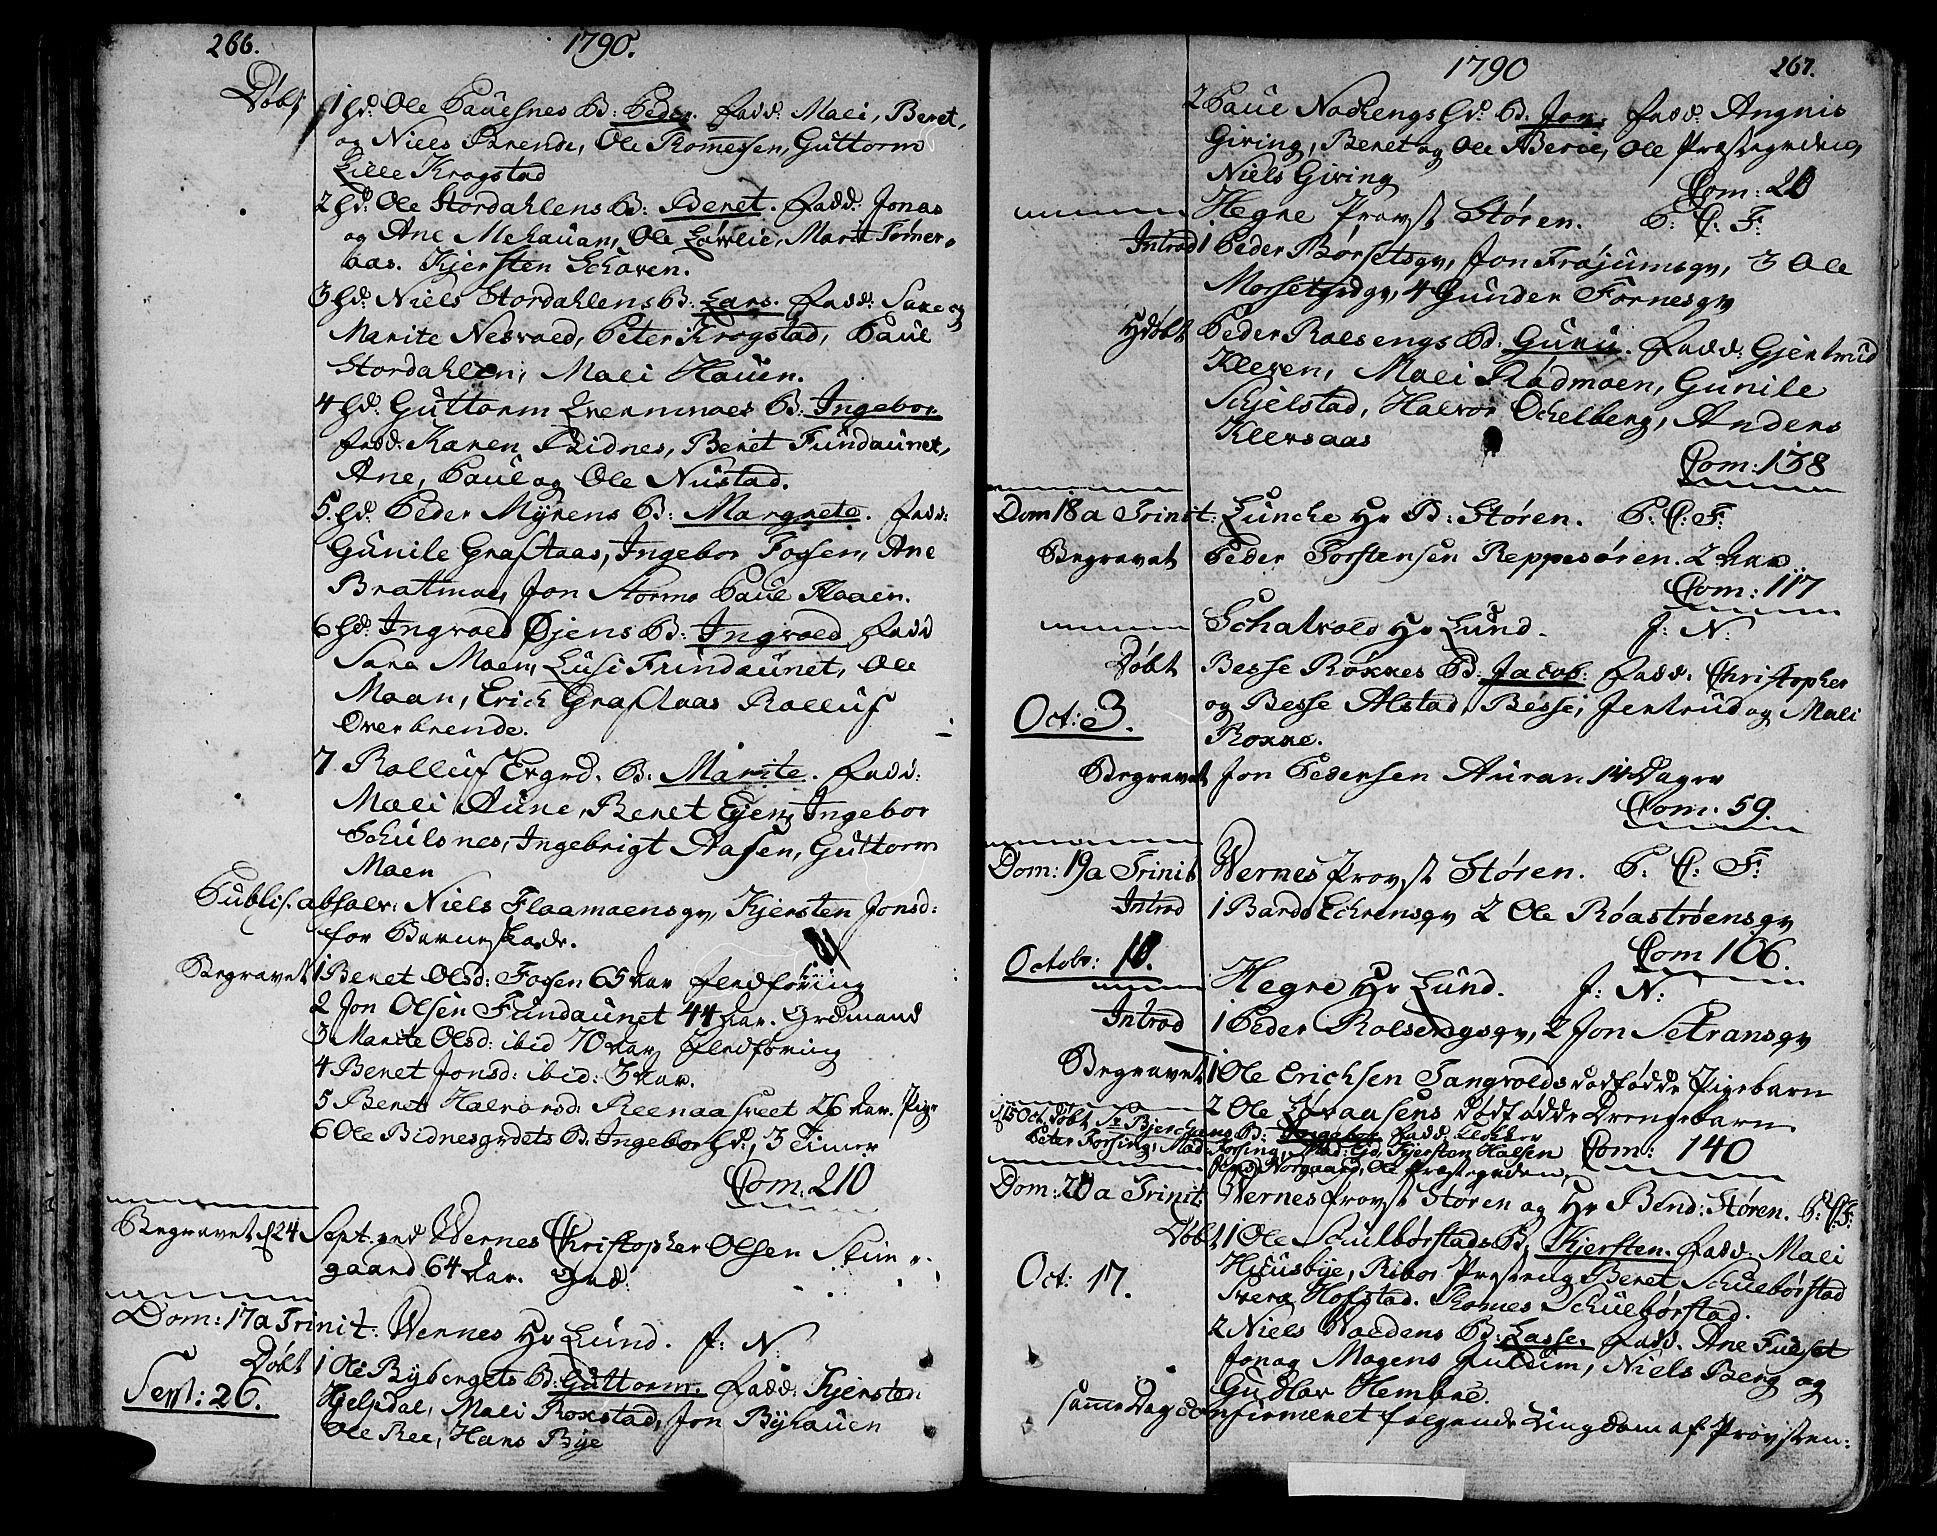 266.
1790.
Døbt 1 hd: Ole Paulsnes B: Peder. fadd: Mali, Beret,
og Niels Brende, Ole Romessen, Guttorm
Lille Kragstad
2 hd: Ole Stordahlens B: Beret. fadd: Jonas
og Ane Mehauan, Ole Løvlie, Marit Tømer-
aas. Kjersten Scharen.
3 hd: Niels Stordahlens B: Lars. fadd: Sara og
Marite Nesvold, Peter Krogstad, Paul
Stordahlen, Mali Hauen.
4 hd: Guttorm Qvernmoes B: Ingebor.
fadd: Karen Bidnes, Beret Fundaunet,
Ane, Paul og Ole Nustad.
5. hd: Peder Myrens B: Margrete. fadd:
Gunile Grafaas, Ingebor Fossen, Ane
Bratmoe, Jon Stormo Paul Flaaen.
6 hd: Ingvold Øjens B: Ingvold fadd
Sara Moen, Lusi Fundaunet, Ole
Moan, Erich Grafaas Rolluf
Overbrende.
7 Rolluf Ergrd. B: Marite. fadd:
Mali Aune, Beret Ejen, Ingebor
Schulsnes, Ingebrigt Aasen, Guttorm
Moen
Publis. absolv: Niels Flaamoensgv, Kjersten Jonsd:
for Barneskade.
Begravet 1 Beret Olsd: Fossen 65 Aar fledføring
2 Jon Olsen Fundaunet 44 Aar. Grdmand
3 Marite Olsd: ibid 70 Aar fledføring
4 Beret Jonsd: ibid: 3 Aar.
5 Beret Halvorsd: Reenaasveet 26 Aar. Pige
6 Ole Bidnesgrdets B: Ingebor hd: 3 Timer
Com: 210
Begravet d 24 Sept. ved Wernes Christopher Olsen Stein-
gaard 64 Aar. Grd:
Dom: 17 a Trinit: Wernes Hr Lund. J: N:
Døbt 1 Ole Bybergets B: Guttorm. fadd: Kjersten
Sept: 26. Hielpdal, Mali Roxstad, Jon Byhauen
Ole Ree, Hans Bye
1790
267.
2 Paul Nachengs hd: B: Jon. fadd: Angnis
Giving, Beret og Ole Aberie, Ole Præstegrden,
Niels Giving
Com: 20
Hegre Provst Støren. P: C: F:
Introd 1 Peder Børsetsgv, Jon Frøjumsgv, 3 Ole
Morsetgrdgv, 4 Gunder Fornesgv
Hdøbt Peder Rolsengs B: Guru. fadd: Gjertrud
Kleven, Mali Rødmoen, Gunile
Schjelstad, Halvor Ochelberg, Anders
Klevsaas
Com: 138
Dom 18 a Trinit: Luncke Hr B: Støren. P: C: F:
Begravet Peder Torstensen Reppesøren. 2 Aar
Com: 117
Schatvold Hr Lund. J: N:
Døbt Besse Røkkes B: Jacob: fadd: Christopher
Oct: 3. og Besse Alstad, Besse, Jertrud og Mali
Røkke.
Begravet Jon Pedersen Auran 14 Dager
Com: 59.
Dom: 19 a Trinit Wernes Provst Støren. P: C: F:
Introd 1 Bards Echrensgv 2 Ole Røastrøensgv
Octobr: 10. Com 106.
Hegre Hr Lund. J: N:
Introd 1 Peder Rolsengsgv, 2 Jon Setransgv
Begravet 1 Ole Erichsen Tangvolds dødfødde Pigebarn
2 Ole Løvaasens Dødfødde Drengebarn
d 15 Oct. døbt Bjerchans B: Ingebor fadd:
Peter Forsing, Mad: Forsing, Mad: Kjersten Halsen Com: 140
Jens Norgaard, Ole Præstegrden,
Dom: 20 a Trinit Wernes Provst Støren og Hr Bend: Støren. P: C: F:
Døbt 1 Ole Schulbørstads B: Kjersten. fadd: Mali
Oct: 17. Huusbye, Ribor Præsteng Beret Schuebørstad
Svera Hofstad. Thomes Schuebørstad.
2 Niels Woldens B: Lasse. fadd. Ane Fulset
Jon og Mogens Julum, Niels Berg og
Gudlov Hembre.
samme Dag confirmeret følgende Ungdom af Provsten: